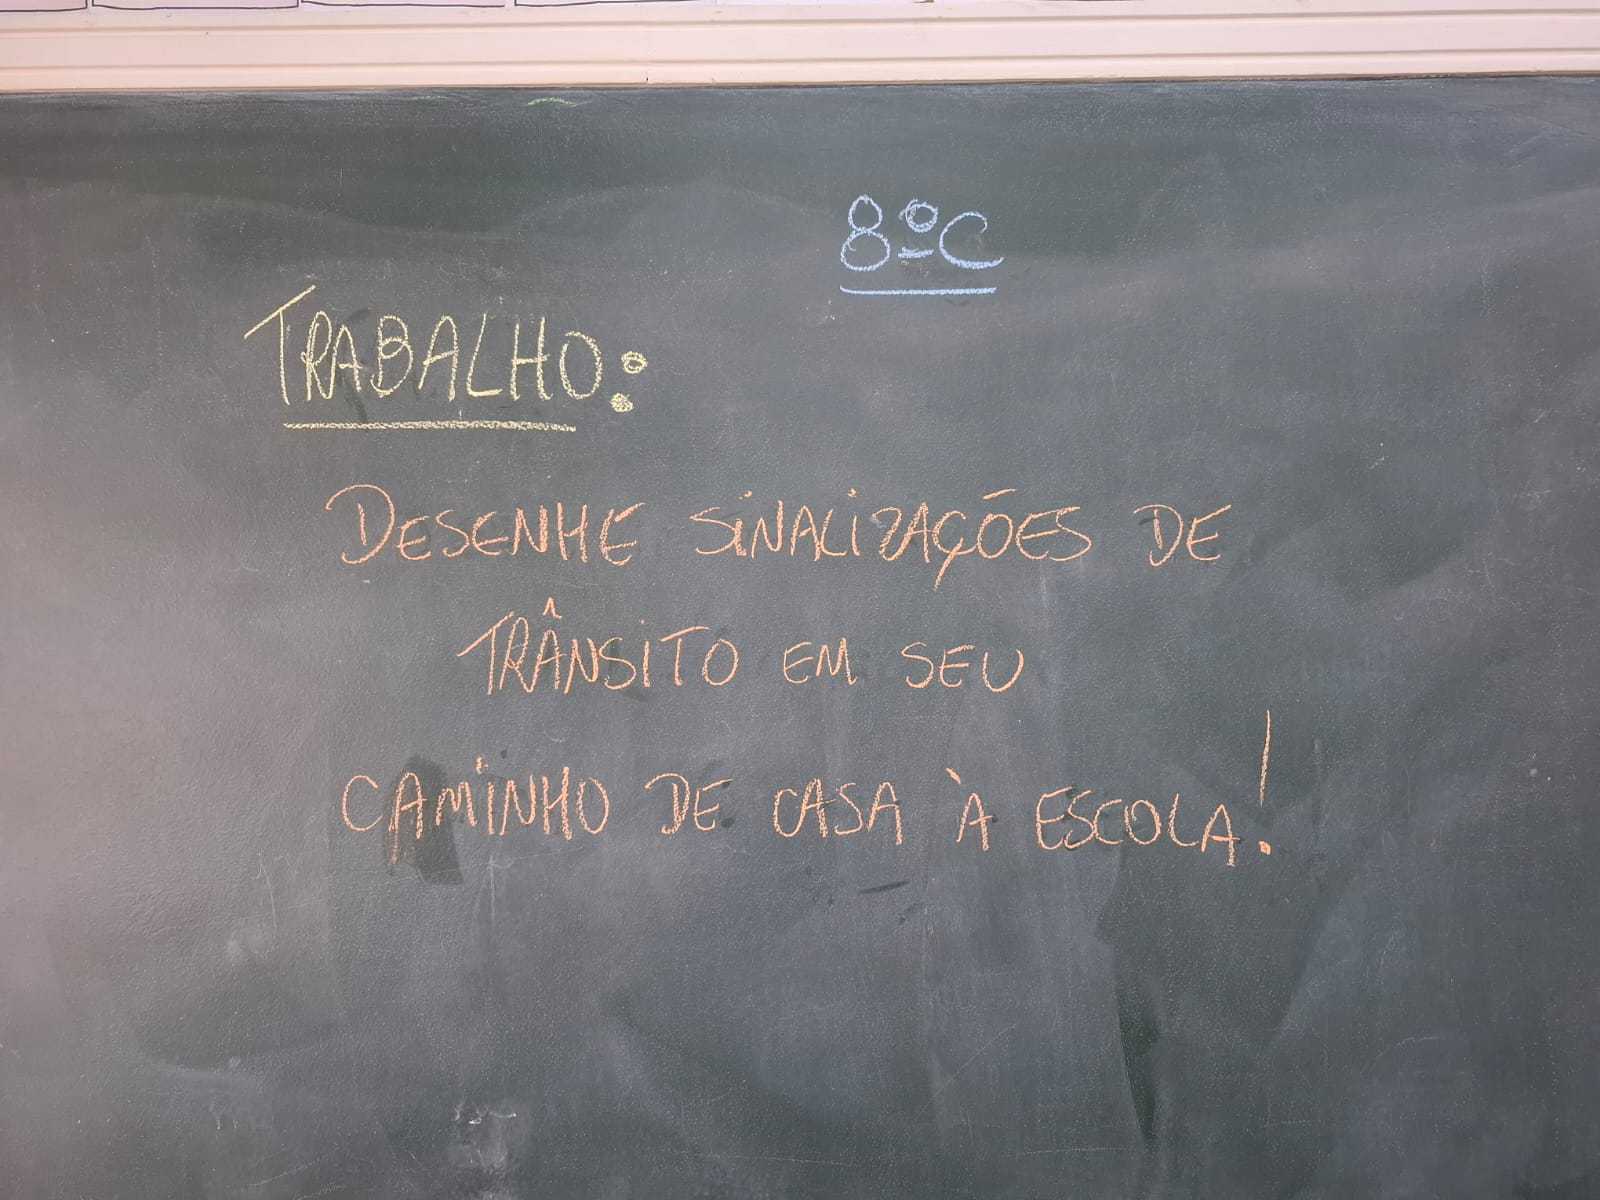 8ºC
TRABALHO:
DESENHE SINALIZAÇÕES DE
TRÂNSITO EM SEU
CAMINHO DE CASA À ESCOLA!